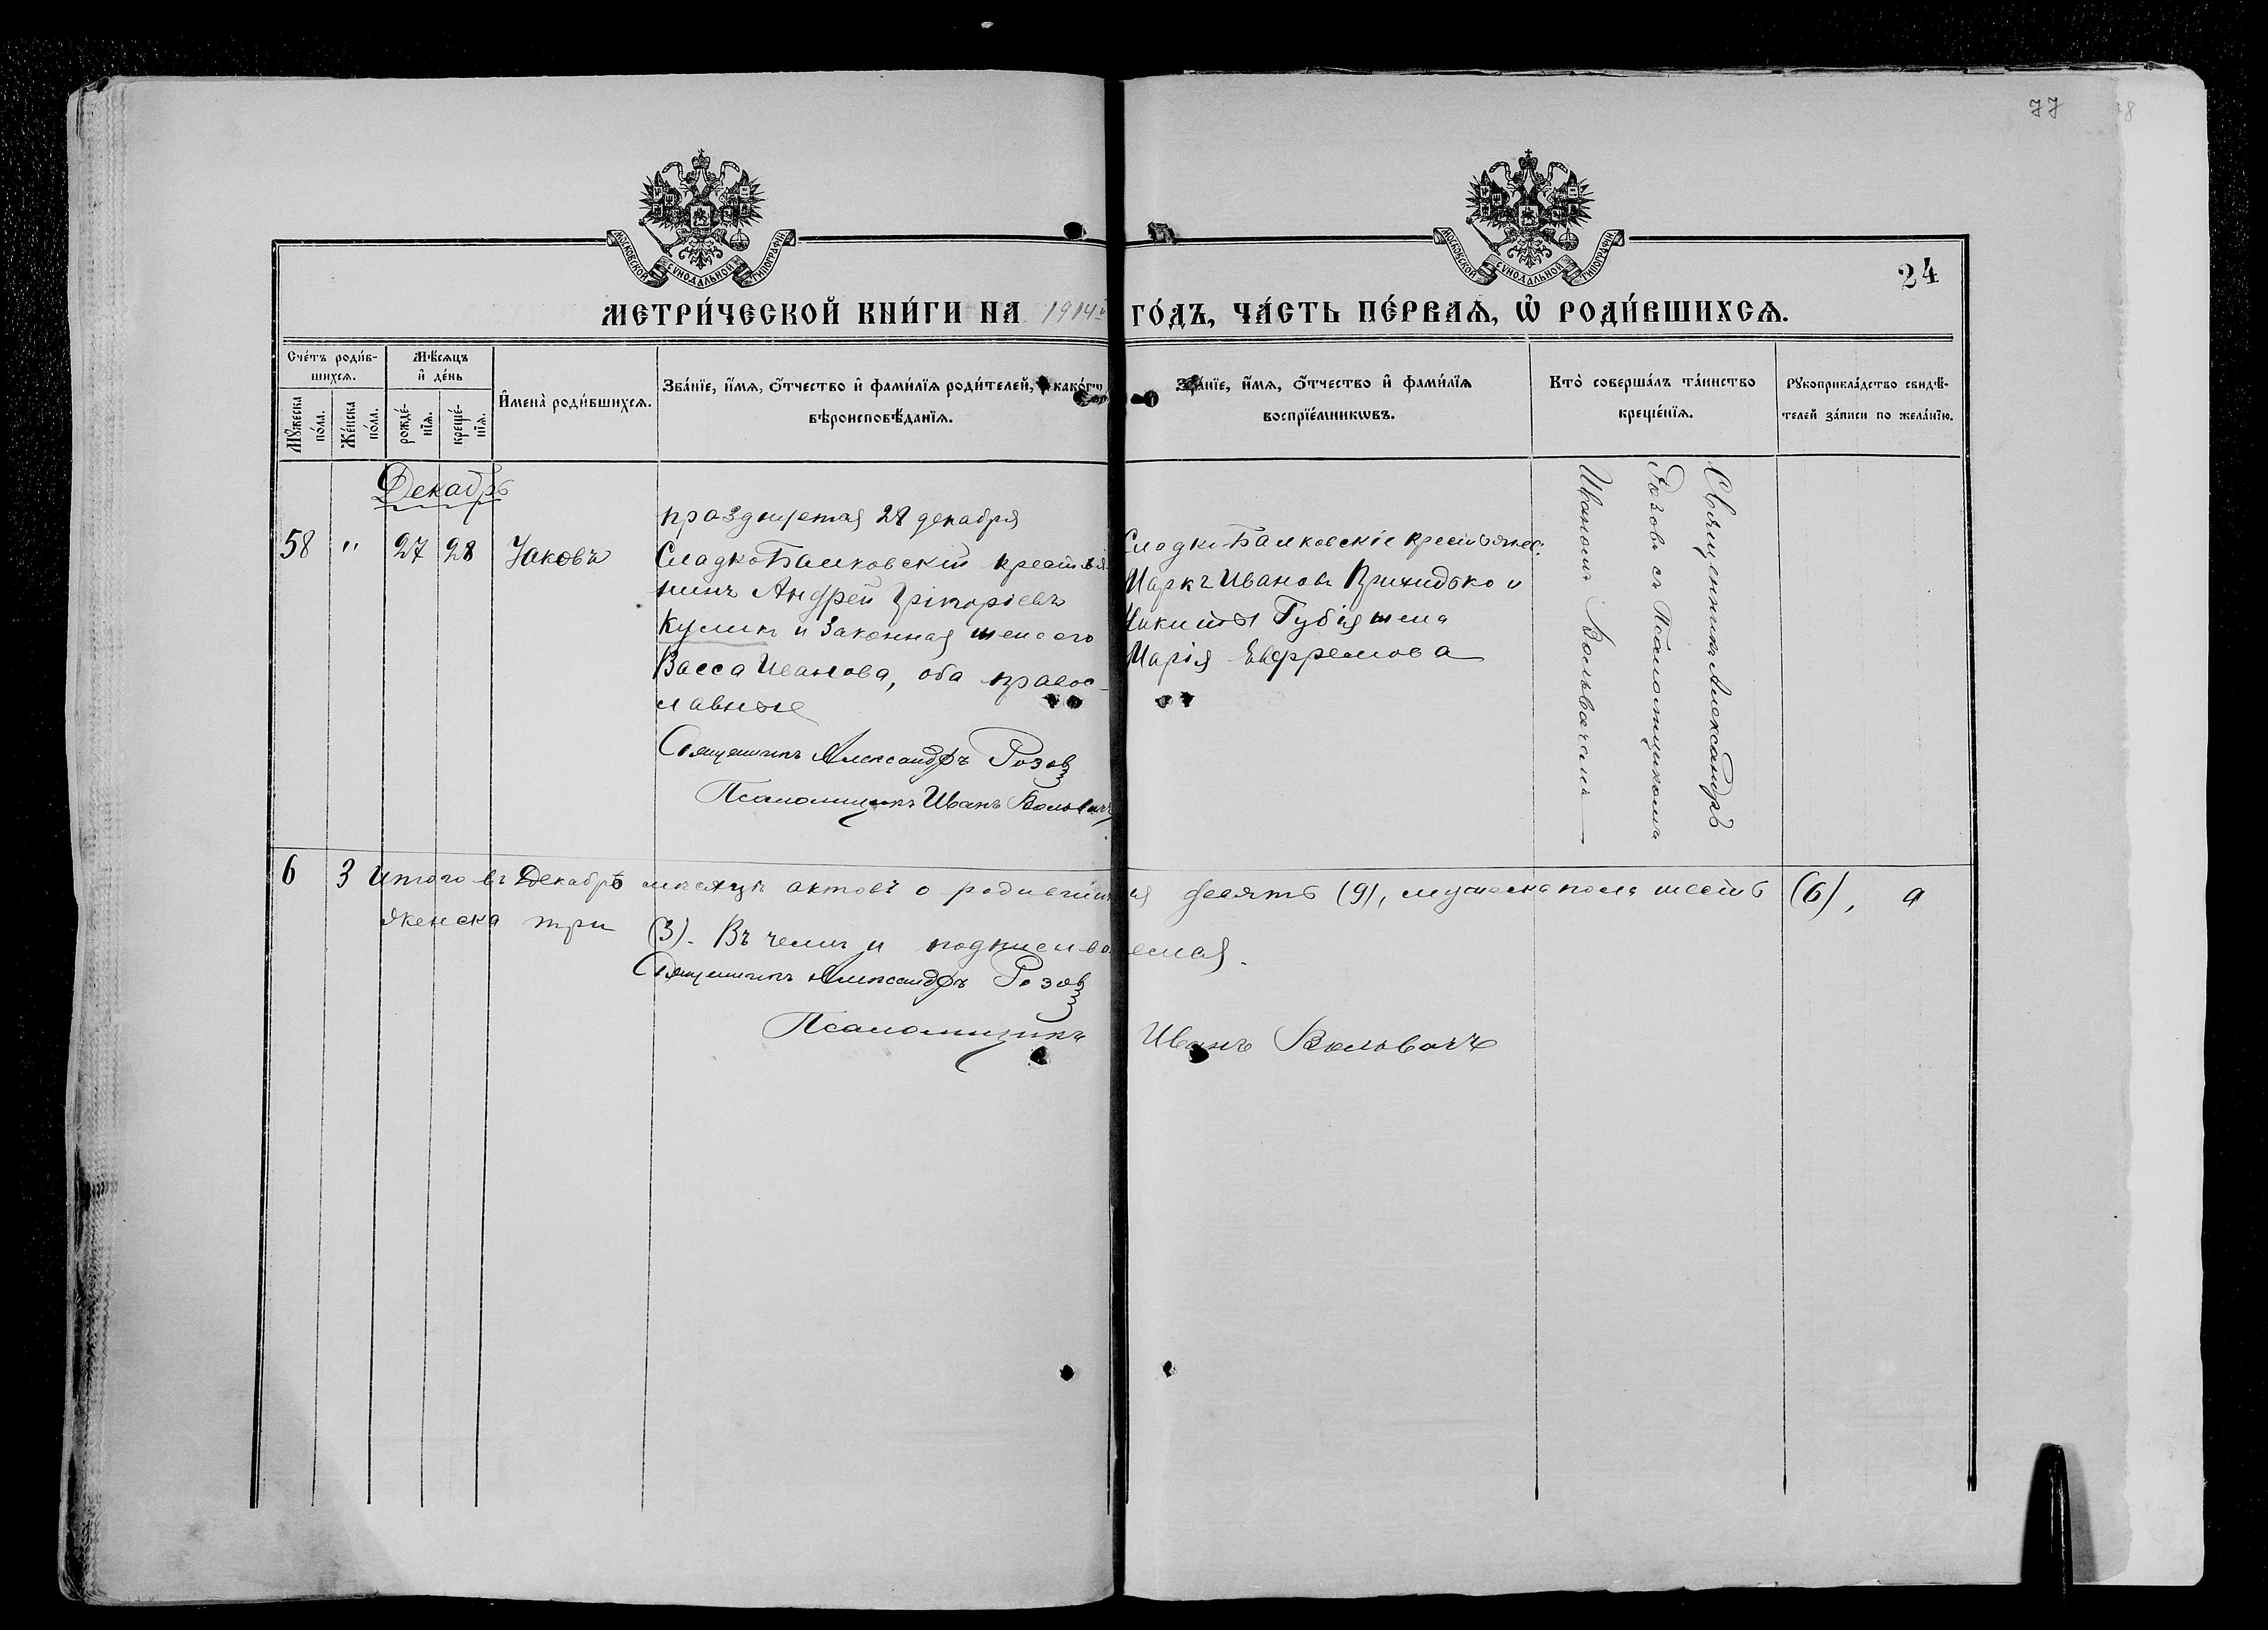 77
МОСКОВСКОЙ СУНОДАЛЬНОЙ ТИПОГРАФІИ
МОСКОВСКОЙ СУНОДАЛЬНОЙ ТИПОГРАФІИ
24
МЕТРИ́ЧЕСКОЙ КНИ́ГИ НА 1914й ГО́ДЪ, ЧА́СТЬ ПЕ́РВАѦ, Ѽ РОДИ́ВШИХСѦ.
Сче́тъ роди́в-
шихсѧ.
Мѣ́сѧцъ
и҆ де́нь
И҆мена̀ роди́вшихсѧ.
Зва́нїе, и҆́мѧ, ѻ҆́тчество и҆ фами́лїѧ роди́телей, како́гѡ
вѣроисповѣ́данїѧ.
Зва́нїе, и҆́мѧ, ѻ҆́тчество и҆ фами́лїѧ
воспрїе́мникѡвъ.
Кто̀ соверша́лъ та́инство
креще́нїѧ.
Рꙋкоприкла́дство свидѣ́-
телей за́писи по жела́нїю.
Мꙋ́жеска по́ла.
Же́нска по́ла.
рожде́-нїѧ.
креще́-нїѧ.
Декабрь
празднуемая 28 декабря
58 " 27 28 Іаковъ
СладкоБалковскій крестья
нинъ Андрей Грігоріевъ
Куликъ и законная жена его
Васса Иванова, оба правос-
лавные
Священникъ Александръ Розовъ
Псаломщикъ Иванъ Вольвачъ
СладкоБалковскіе крестьяне:
Маркъ Ивановъ Приходько и
Никиты Губія жена
Марія Евфремова
Священникъ Александръ
Розовъ съ Псаломщикомъ
Иваномъ Вольвачемъ
6 3 Итого въ Декабрѣ мѣсяцѣ актовъ о родившихся девять (9), мужеска пола шесть (6), а
женска три (3). Въ чемъ и подписываемся.
Священникъ Александръ Розовъ
Псаломщикъ Иванъ Вольвачъ